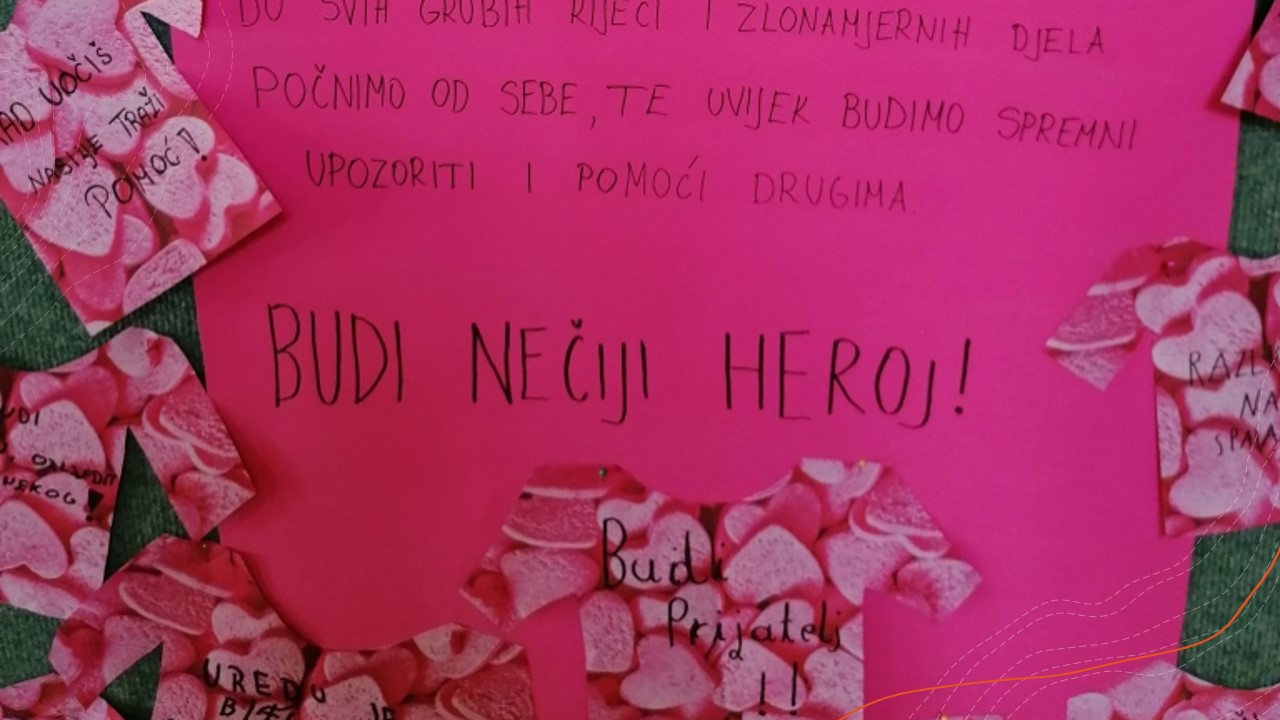 DO SVIH GRUBIH RIJEČI I ZLONAMJERNIH DJELA
POČNIMO OD SEBE, TE UVIJEK BUDIMO SPREMNI
UPOZORITI I POMOĆI DRUGIMA
BUDI NEČIJI HEROJ!
UOČIŠ
NASILJE TRAŽI
POMOĆ!
Budi
Prijatelj
!!
U REDU
JE
NA